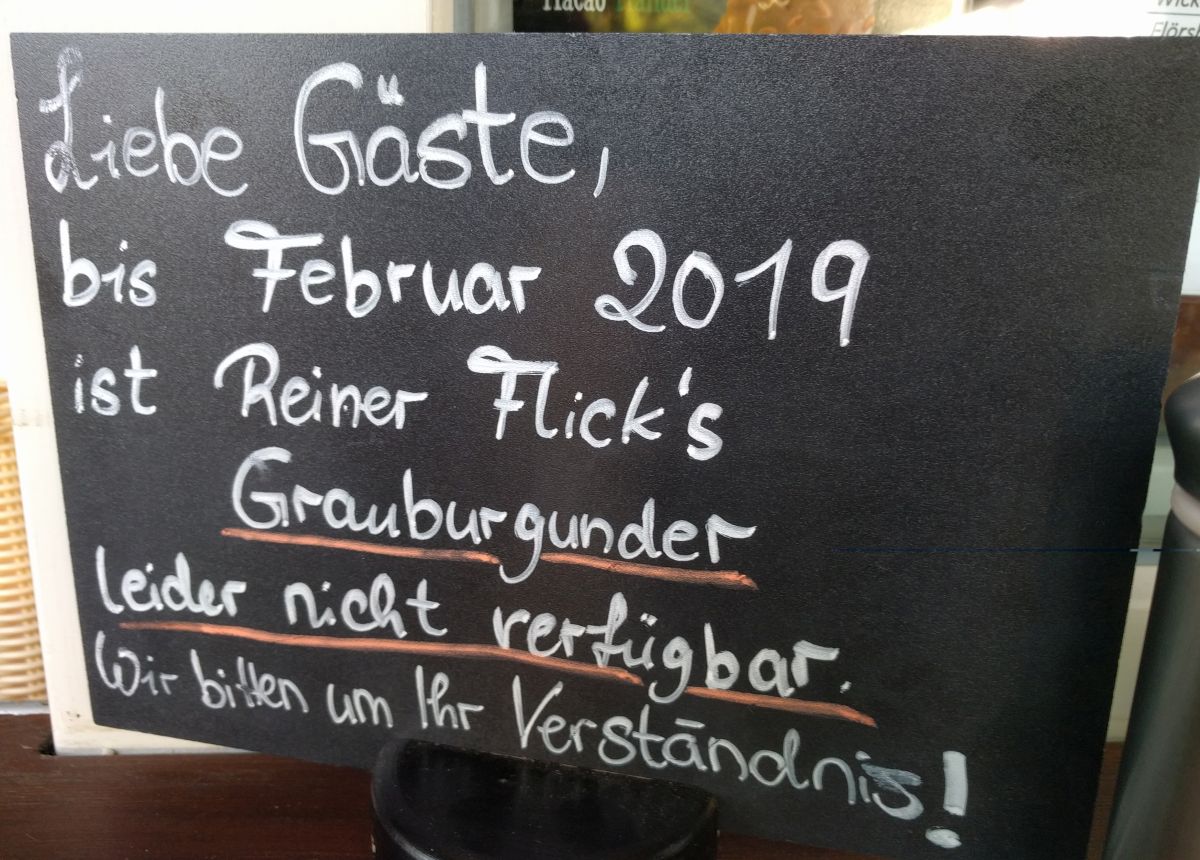 Liebe Gäste,
bis Februar 2019
ist Reiner Flick's
Grauburgunder
leider nicht verfügbar.
Wir bitten um Ihr Verständnis!